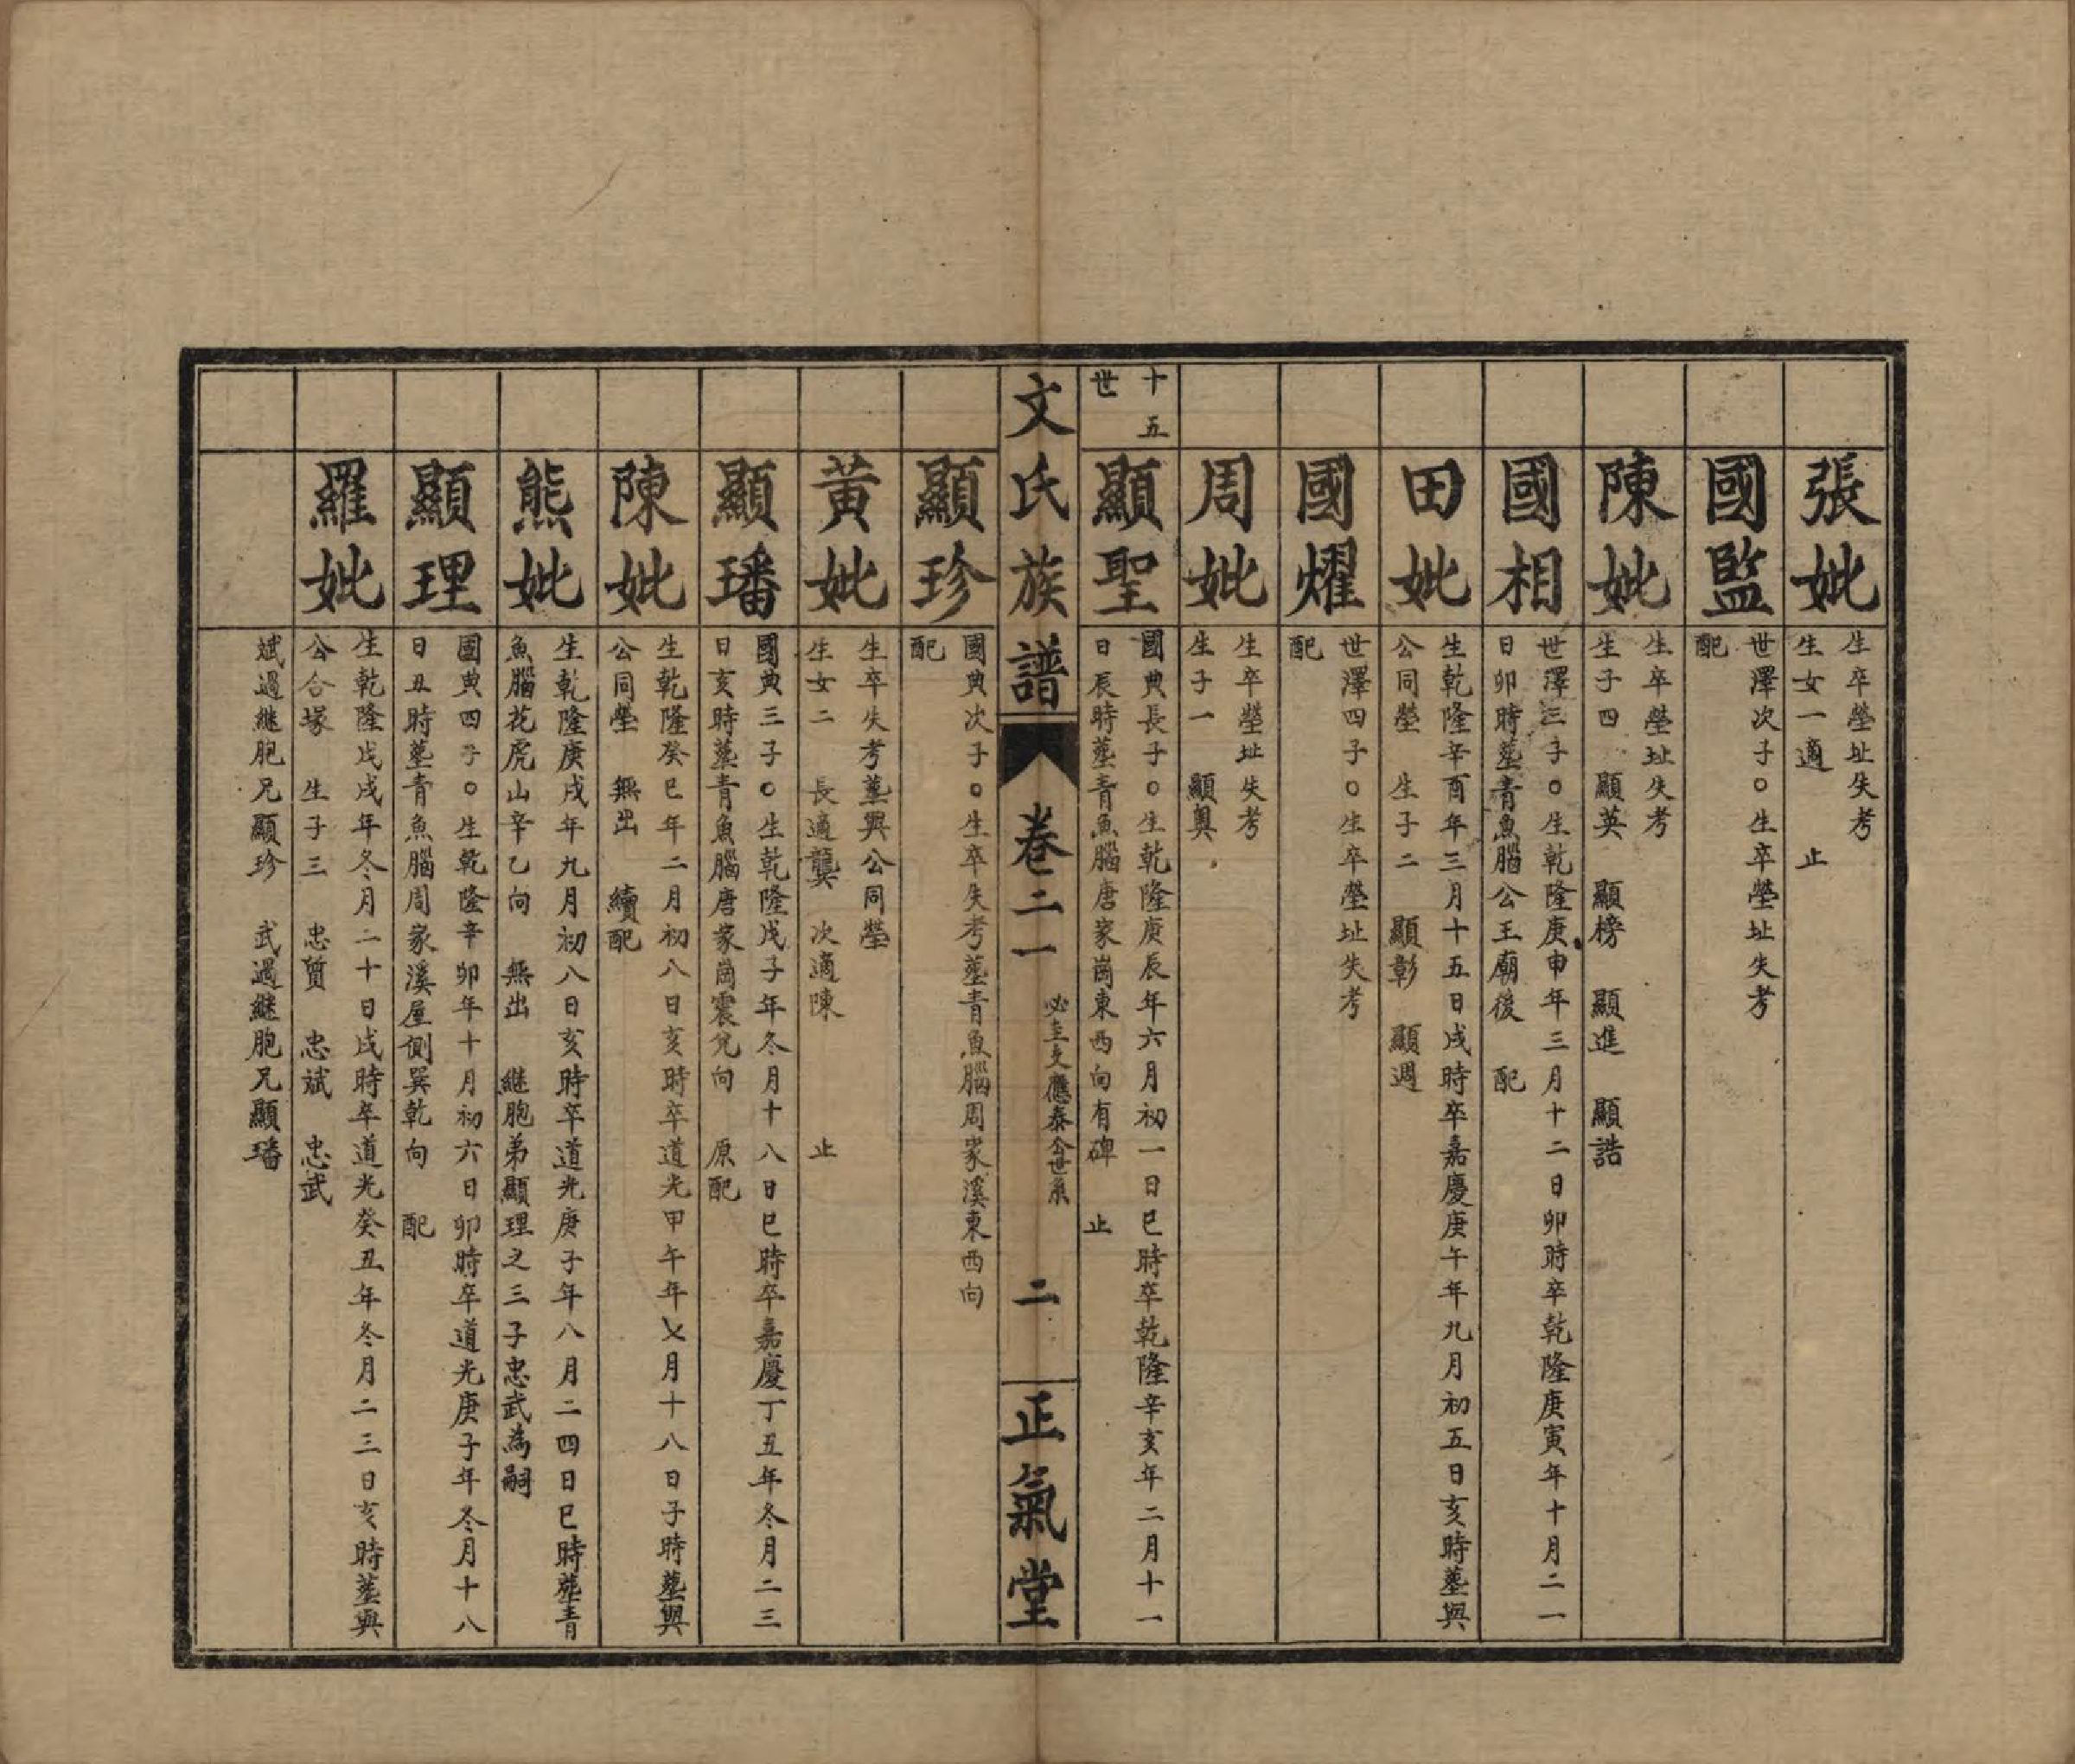 張妣
生卒塋址失考
生女一適　止
國監
世澤次子○生卒塋址失考
配
陳妣
生卒塋址失考
生子四　顯英　顯榜　顯進　顯誥
國相
世澤三子○生乾隆庚申年三月十二日卯時卒乾隆庚寅年十月二一
日卯時塟青魚腦公王廟後　配
田妣
生乾隆辛酉年三月十五日戌時卒嘉慶庚午年九月初五日亥時塟與
公同塋　生子二　顯彰　顯週
國燿
世澤四子○生卒塋址失考
配
周妣
生卒塋址失考
生子一　顯輿
十五
世
顯聖
國典長子○生乾隆庚辰年六月初一日巳時卒乾隆辛亥年二月十一
日辰時塟青魚腦唐家崗東西向有碑　止
文氏族譜
卷二一
必主文應泰公世系
二
正氣堂
顯珍
國典次子○生卒失考塟青魚腦周家溪東西向
配
黃妣
生卒失考塟與公同塋
生女二　長適龔　次適陳　止
顯璠
國典三子○生乾隆戊子年冬月十八日巳時卒嘉慶丁丑年冬月二三
日亥時塟青魚腦唐家崗震兌向　原配
陳妣
生乾隆癸巳年二月初八日亥時卒道光甲午年乂月十八日子時塟與
公同塋　無出　續配
熊妣
生乾隆庚戌年九月初八日亥時卒道光庚子年八月二四日巳時塟青
魚腦花虎山辛乙向　無出　継胞弟顯理之三子忠武為嗣
顯理
國典四子○生乾隆辛卯年十月初六日卯時卒道光庚子年冬月十八
日丑時塟青魚腦周家溪屋側巽乾向　配
羅妣
生乾隆戊戌年冬月二十日戌時卒道光癸丑年冬月二三日亥時塟與
公合塚　生子三　忠質　忠斌　忠武
斌過継胞兄顯珍　武過継胞兄顯璠